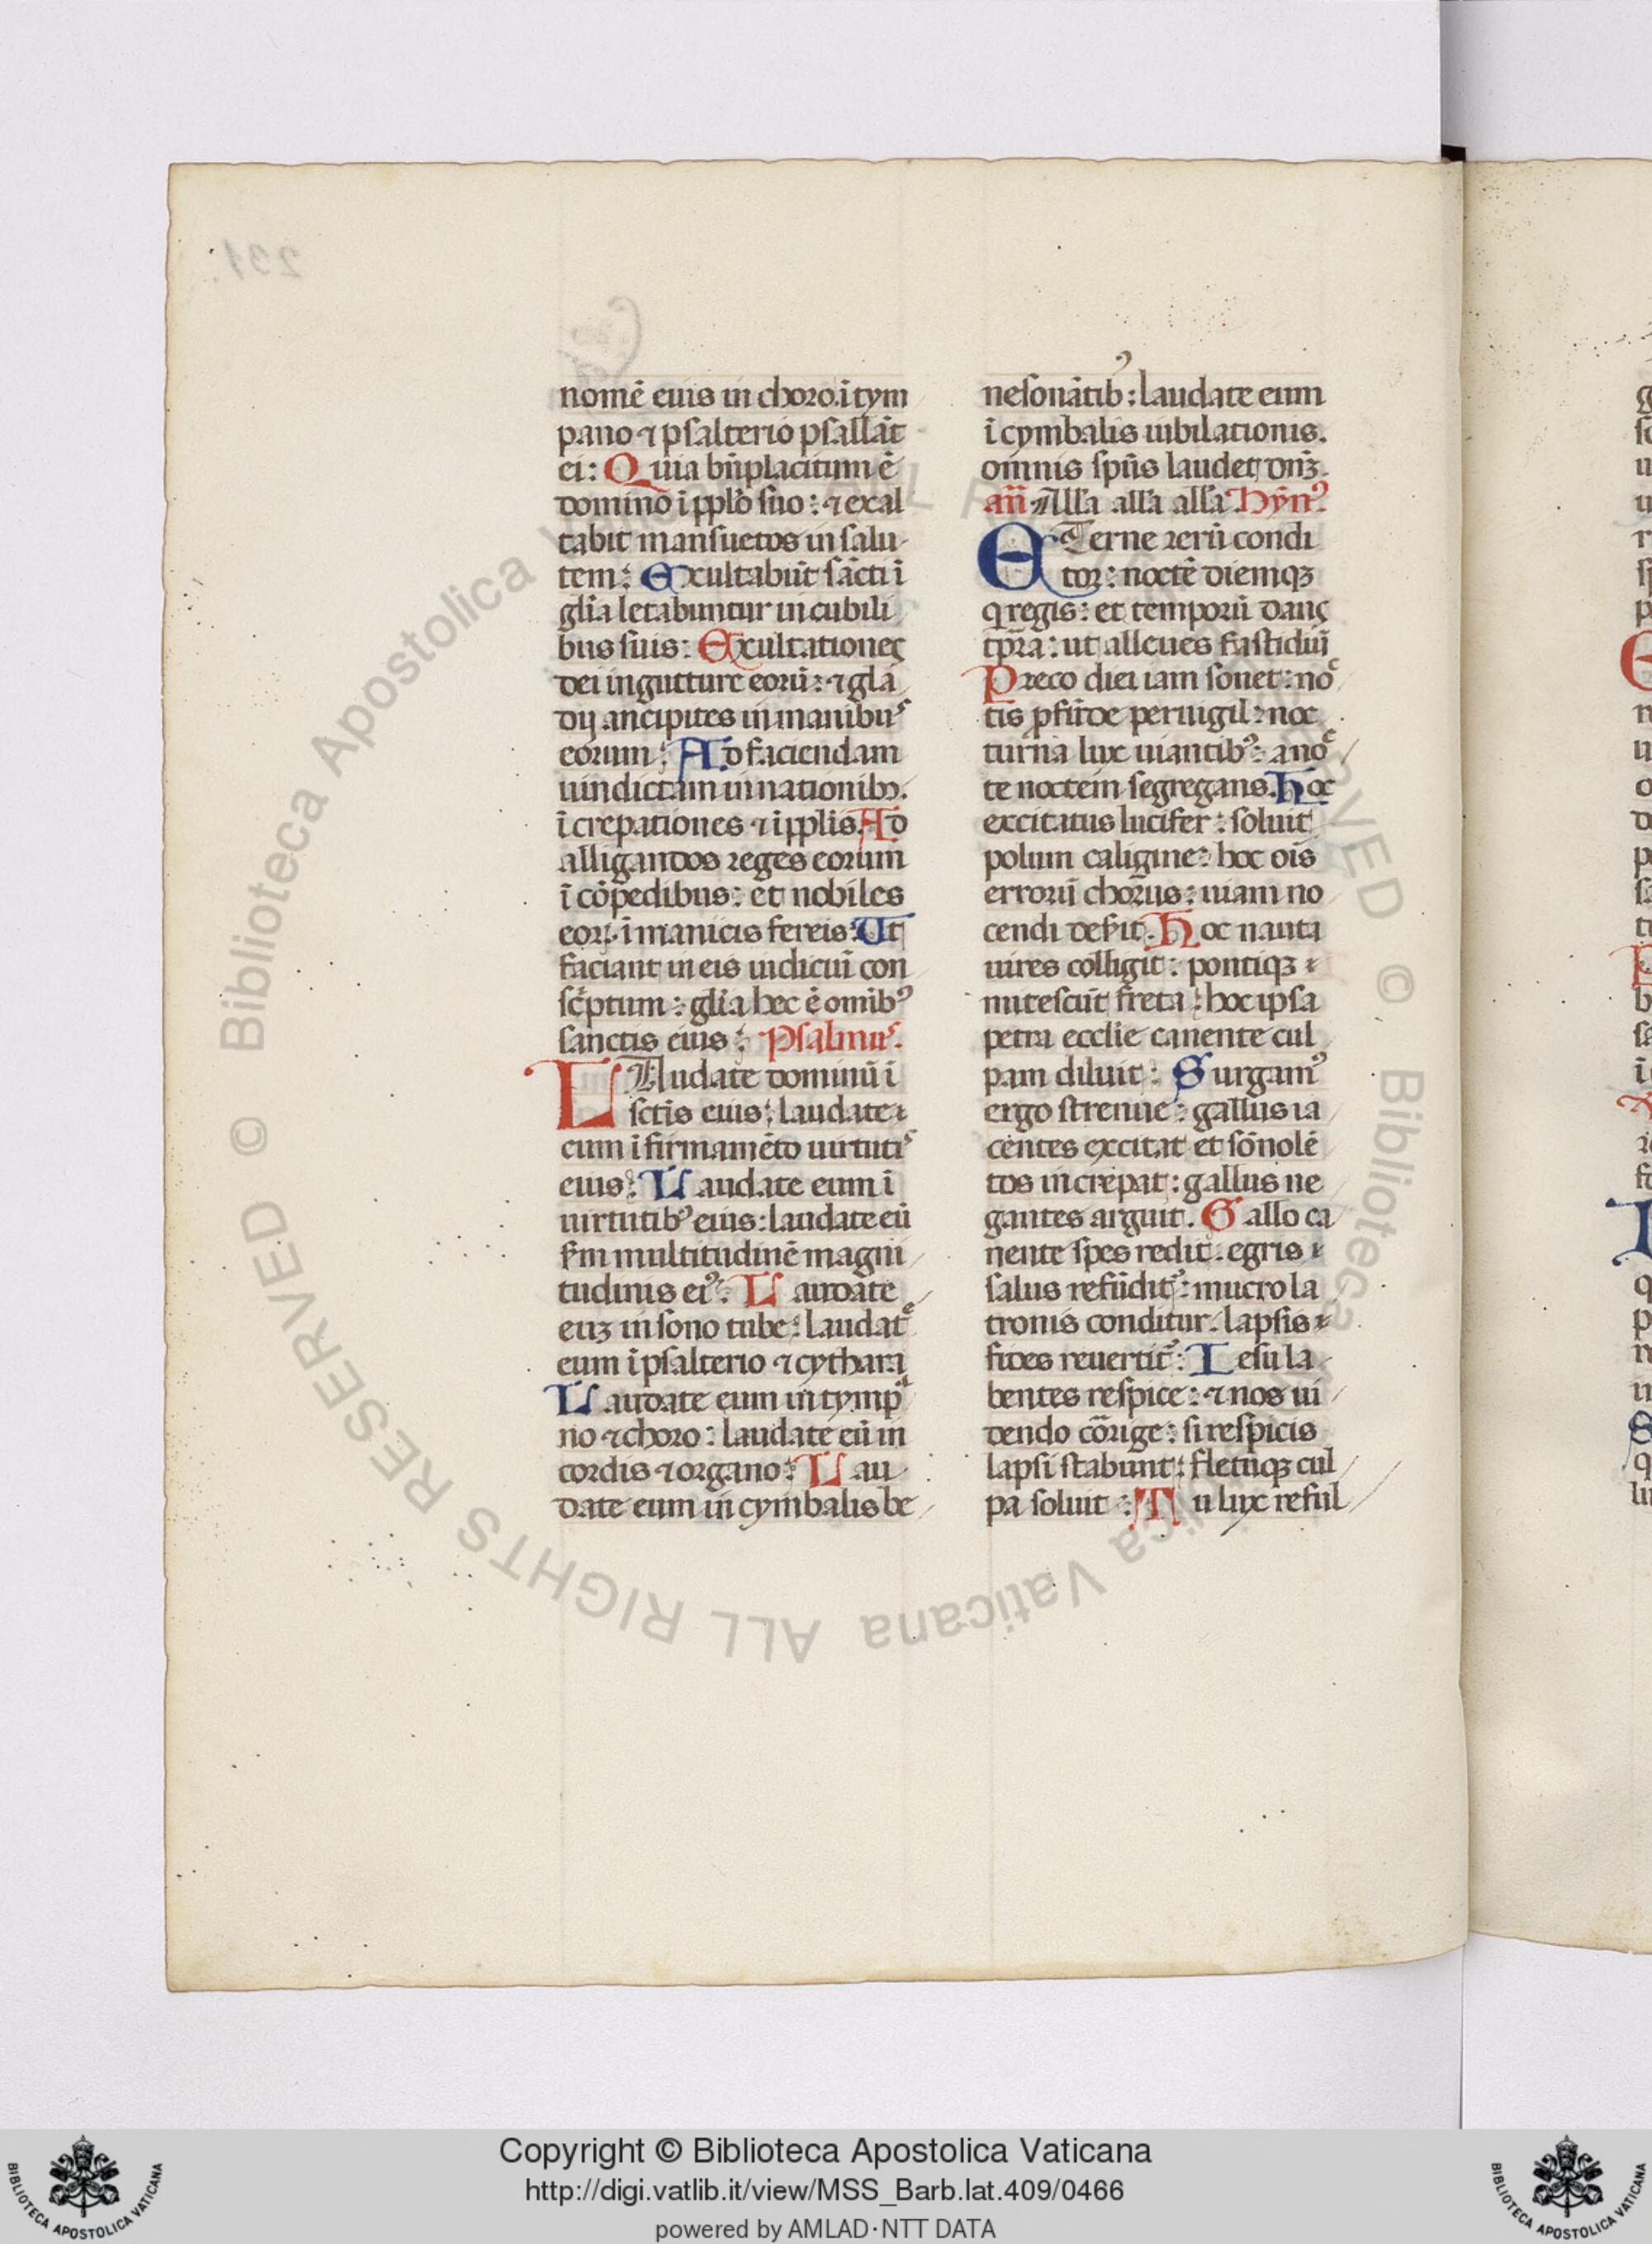 nomē eius in choro. ī tym
pano ⁊ psalterio psallāt
ei: Quia bn̄placitum ē
domino ī pplo suo: ⁊ exal
tabit mansuetos in salu
tem: Exultabūt sācti ī
glīa letabuntur in cubili
bus suis: Exultationes
dei in gutture eorū: ⁊ gla
dij ancipites in manibus
eorum: Ad faciendam
uindictam in nationibꝫ.
ī crepationes ⁊ ī pplis. Ad
alligandos reges eorum
ī cōpedibus: et nobiles
eorꝝ. ī manicis fereis: Ut
faciant in eis iudicuī con
sc̄ptum: glīa hec ē omībꝰ
sanctis eius: Psalmus.
LAudate dominū ī
sctīs eius: laudate
eum ī firmamēto uirtutis
eius: Laudate eum ī
uirtutibꝰ eius: laudate eū
scḋm multitudinē magni
tudinis eiꝰ: Laudate
euꝫ in sono tube: laudate
eum ī psalterio ⁊ cythara
Laudate eum in tympa
no ⁊ choro: laudate eū in
cordis ⁊ organo: Lau
date eum in cymbalis be
nesonātibꝰ: laudate eum
ī cymbalis iubilationis.
omnis sp̄us laudet dn̄ꝫ.
an̄ Alla alla alla Hȳnꝰ
ETerne rerū condi
tor: noctē diemqꝫ
q regis: et temporū dans
tp̄ra: ut alleues fastidiū
Preco diei iam sonet: noc
tis ꝓfūde peruigil: noc
turna lux uiantibꝰ: a noc
te noctem segregans. Hoc
excitatus lucifer: soluit
polum caligine: hoc oīs
errorū chorus: uiam no
cendi deserit. Hoc nauta
uires colligit: pontiqꝫ
mitescūt freta: hoc ipsa
petra ecclie canente cul
pam diluit: Surgamꝰ
ergo strenue: gallus ia
centes excitat et sōnolē
tos increpat: gallus ne
gantes arguit. Gallo ca
nente spes redit. egris
salus refūditꝰ: mucro la
tronis conditur. lapsis
fides reuertitꝰ: Iesu la
bentes respice: ⁊ nos ui
dendo cōrige: si respicis
lapsi stabunt: fletuqꝫ cul
pa soluit: Tu lux reful
Copyright © Biblioteca Apostolica Vaticana
http://digi.vatlib.it/view/MSS_Barb.lat.409/0466
powered by AMLAD·NTT DATA